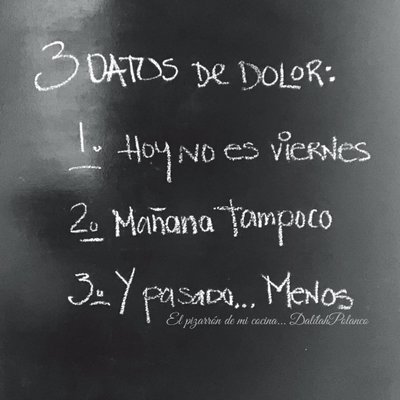 3 DATOS DE DOLOR:
1º HOY NO ES VIERNES
2º Mañana Tampoco
3º Y pasado... MENOS
El pizarrón de mi cocina... DalilahPolanco